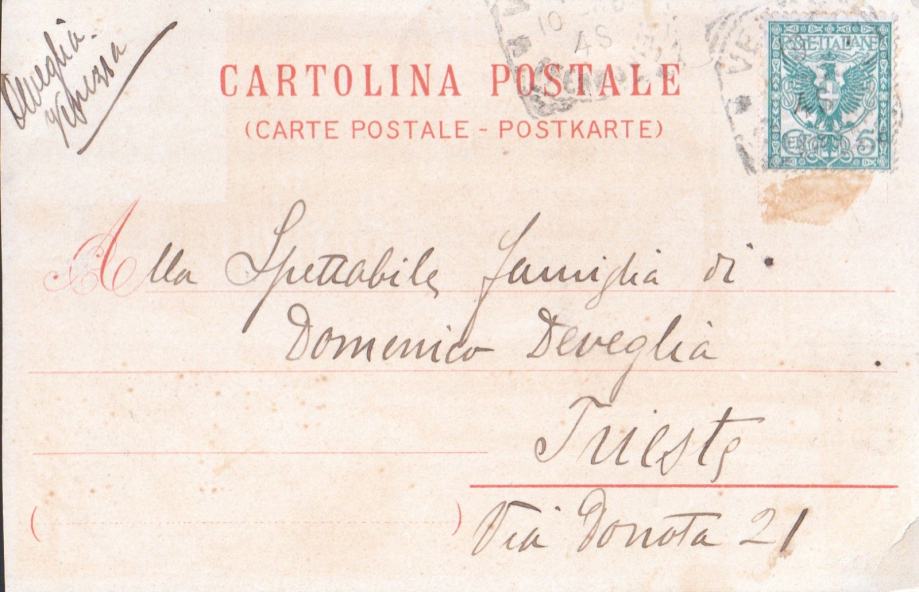 Deveglia.
Venezia
CARTOLINA POSTALE
(CARTE POSTALE - POSTKARTE)
POSTE ITALIANE
C 5
Alla Spettabile famiglia di
Domenico Deveglia
Trieste
Via Donota 21